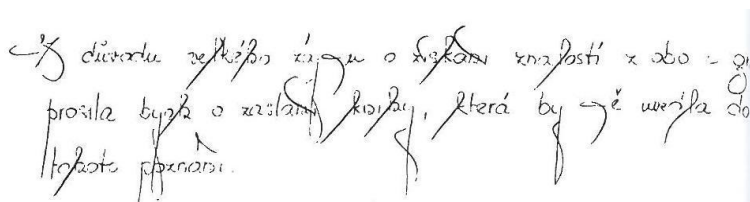 Z důvodu velkého zájmu o získání znalostí z obo -
prosila bych o zaslání knihy, která by mě uvedla do
tohoto poznání.